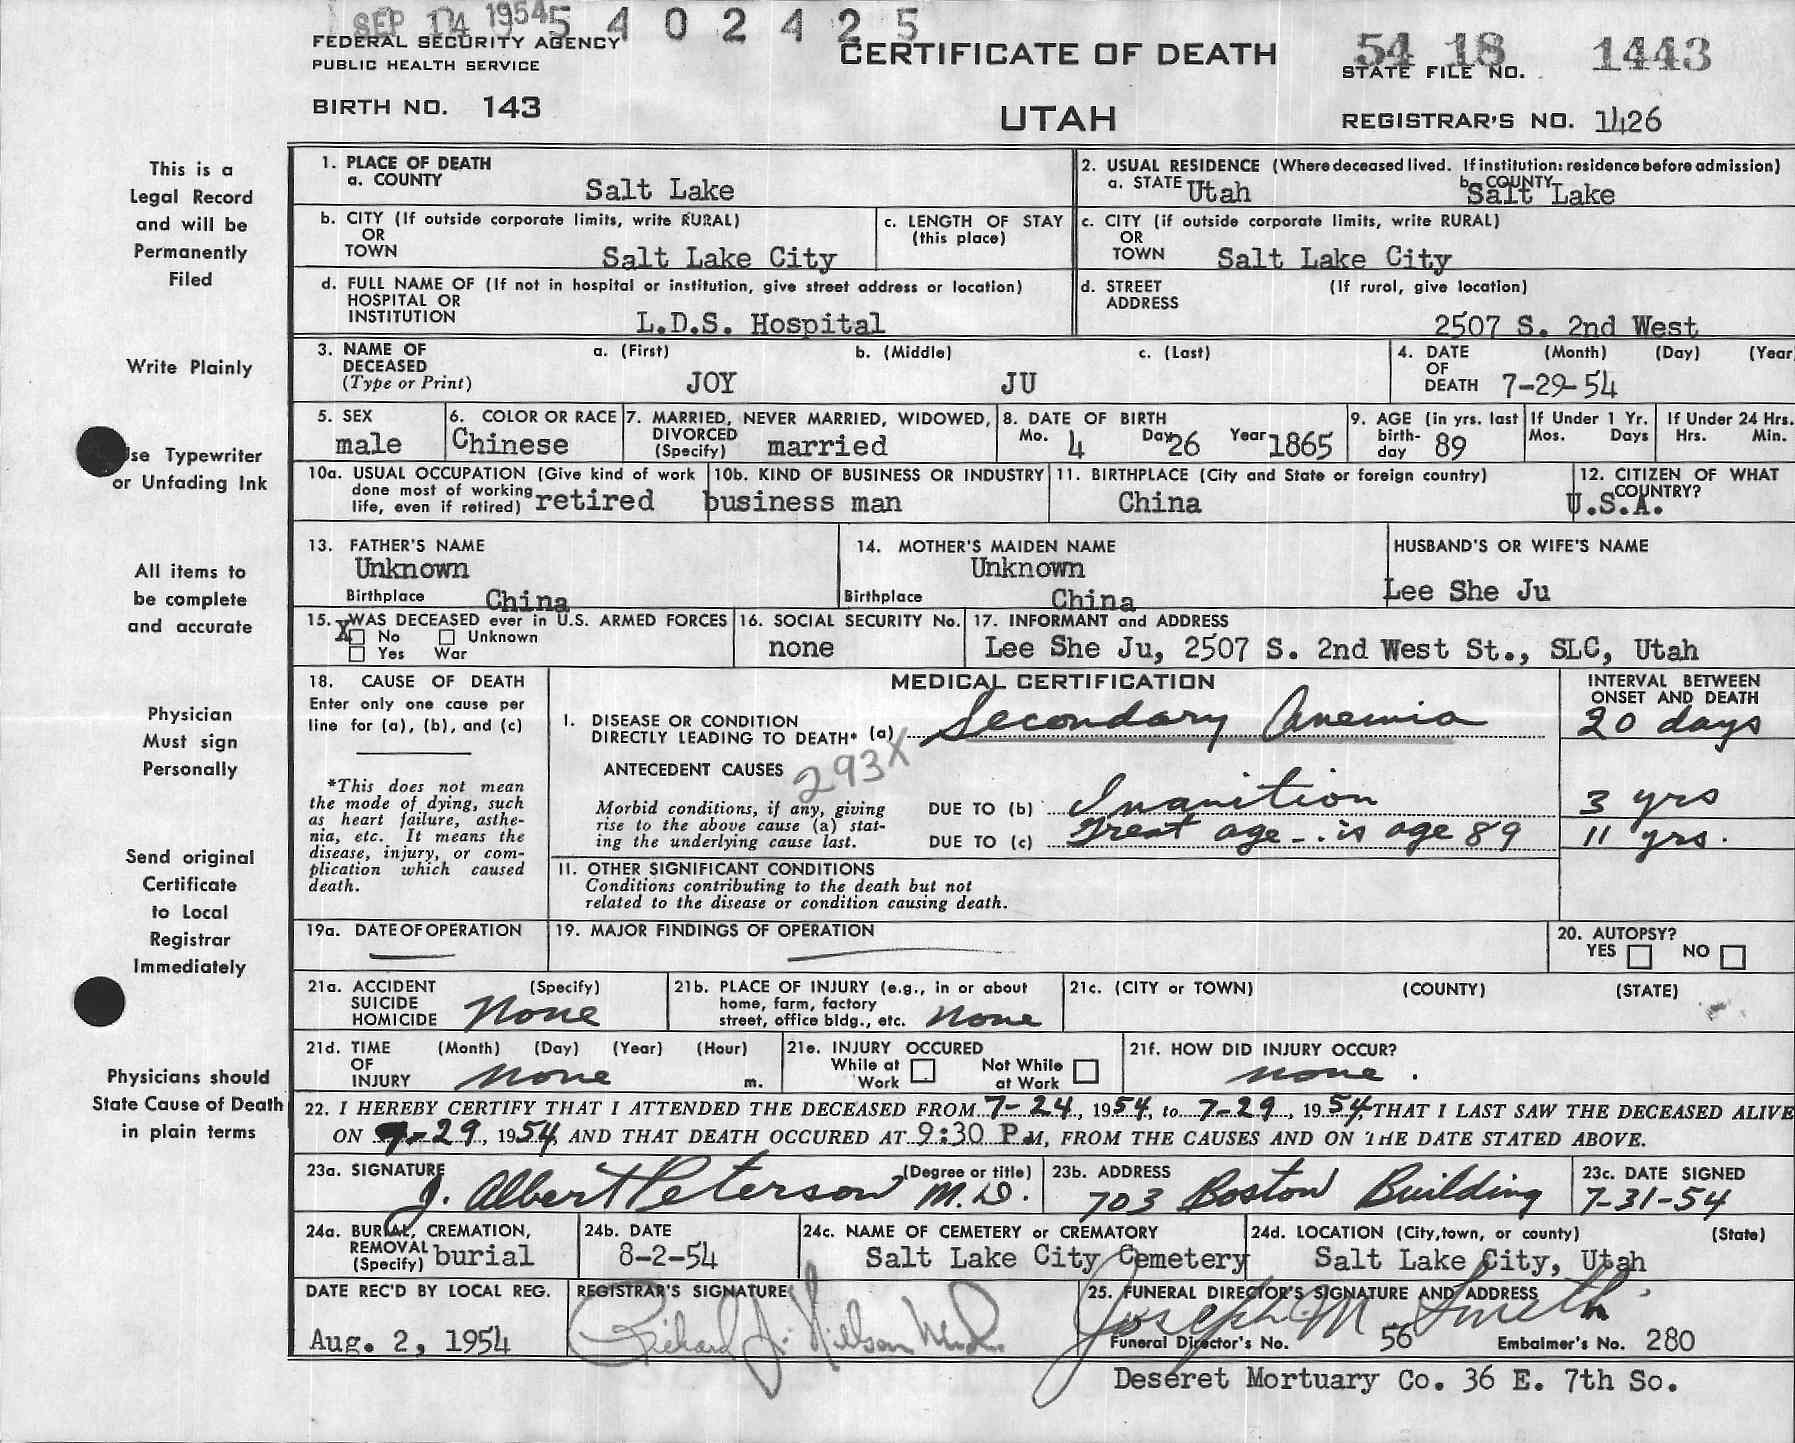 SEP 14 1954
5 4 0 2 4 2 5
FEDERAL SECURITY AGENCY
PUBLIC HEALTH SERVICE
CERTIFICATE OF DEATH
54 18 1443
STATE FILE NO.
BIRTH NO. 143
UTAH
REGISTRAR'S NO. 1426
This is a
Legal Record
and will be
Permanently
Filed
Write Plainly
se Typewriter
or Unfading Ink
All items to
be complete
and accurate
Physician
Must sign
Personally
Send original
Certificate
to Local
Registrar
Immediately
Physicians should
State Cause of Death
in plain terms
1. PLACE OF DEATH
a. COUNTY
Salt Lake
2. USUAL RESIDENCE (Where deceased lived. If institution: residence before admission)
a. STATE Utah
b. COUNTY Salt Lake
b. CITY (If outside corporate limits, write RURAL)
OR
TOWN Salt Lake City
c. LENGTH OF STAY
(this place)
c. CITY (if outside corporate limits, write RURAL)
OR
TOWN Salt Lake City
d. FULL NAME OF (If not in hospital or institution, give street address or location)
HOSPITAL OR
INSTITUTION L.D.S. Hospital
d. STREET (If rural, give location)
ADDRESS
2507 S. 2nd West
3. NAME OF a. (First) b. (Middle) c. (Last)
DECEASED
(Type or Print) JOY JU
4. DATE (Month) (Day) (Year
OF
DEATH 7-29-54
5. SEX
male
6. COLOR OR RACE
Chinese
7. MARRIED, NEVER MARRIED, WIDOWED,
DIVORCED
(Specify) married
8. DATE OF BIRTH
Mo. 4 Day 26 Year 1865
9. AGE (in yrs. last
birth-
day 89
If Under 1 Yr.
Mos. Days
If Under 24 Hrs.
Hrs. Min.
10a. USUAL OCCUPATION (Give kind of work
done most of working
life, even if retired) retired
10b. KIND OF BUSINESS OR INDUSTRY
business man
11. BIRTHPLACE (City and State or foreign country)
China
12. CITIZEN OF WHAT
COUNTRY?
U.S.A.
13. FATHER'S NAME
Unknown
Birthplace China
14. MOTHER'S MAIDEN NAME
Unknown
Birthplace China
HUSBAND'S OR WIFE'S NAME
Lee She Ju
15. WAS DECEASED ever in U.S. ARMED FORCES
X No Unknown
Yes War
16. SOCIAL SECURITY No.
none
17. INFORMANT and ADDRESS
Lee She Ju, 2507 S. 2nd West St., SLC, Utah
18. CAUSE OF DEATH
Enter only one cause per
line for (a), (b), and (c)
*This does not mean
the mode of dying, such
as heart failure, asthe-
nia, etc. It means the
disease, injury, or com-
plication which caused
death.
MEDICAL CERTIFICATION
INTERVAL BETWEEN
ONSET AND DEATH
I. DISEASE OR CONDITION
DIRECTLY LEADING TO DEATH* (a) Secondary Anemia 20 days
ANTECEDENT CAUSES 293X
Morbid conditions, if any, giving
rise to the above cause (a) stat-
ing the underlying cause last.
DUE TO (b) Inanition 3 yrs
DUE TO (c) Great age - is age 89 11 yrs.
11. OTHER SIGNIFICANT CONDITIONS
Conditions contributing to the death but not
related to the disease or condition causing death.
19a. DATE OF OPERATION
19. MAJOR FINDINGS OF OPERATION
20. AUTOPSY?
YES NO
21a. ACCIDENT (Specify)
SUICIDE
HOMICIDE None
21b. PLACE OF INJURY (e.g., in or about
home, farm, factory
street, office bldg., etc. None
21c. (CITY or TOWN) (COUNTY) (STATE)
21d. TIME (Month) (Day) (Year) (Hour)
OF
INJURY None m.
21e. INJURY OCCURED
While at Work Not While at Work
21f. HOW DID INJURY OCCUR?
None.
22. I HEREBY CERTIFY THAT I ATTENDED THE DECEASED FROM 7-24, 1954, to 7-29, 1954, THAT I LAST SAW THE DECEASED ALIVE
ON 7-29, 1954 AND THAT DEATH OCCURED AT 9:30 P.M, FROM THE CAUSES AND ON THE DATE STATED ABOVE.
23a. SIGNATURE (Degree or title)
J. Albert Peterson M.D.
23b. ADDRESS
703 Boston Building
23c. DATE SIGNED
7-31-54
24a. BURIAL, CREMATION,
REMOVAL
(Specify) burial
24b. DATE
8-2-54
24c. NAME OF CEMETERY or CREMATORY
Salt Lake City Cemetery
24d. LOCATION (City, town, or county) (State)
Salt Lake City, Utah
DATE REC'D BY LOCAL REG.
Aug. 2, 1954
REGISTRAR'S SIGNATURE
Richard J. Nielson
25. FUNERAL DIRECTOR'S SIGNATURE AND ADDRESS
Joseph M Smith
Funeral Director's No. 56 Embalmer's No. 280
Deseret Mortuary Co. 36 E. 7th So.